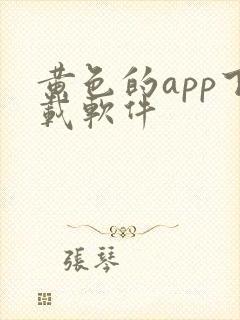 黃色的app下
載軟件
張琴